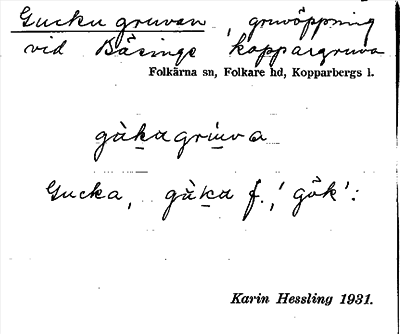 Gucku gruvan, gruvöppning
vid Bäsinge koppargruva
Folkärna sn, Folkare hd, Kopparbergs l.
gàkagrùva
Gucka, gàka f., 'gök':
Karin Hessling 1931.